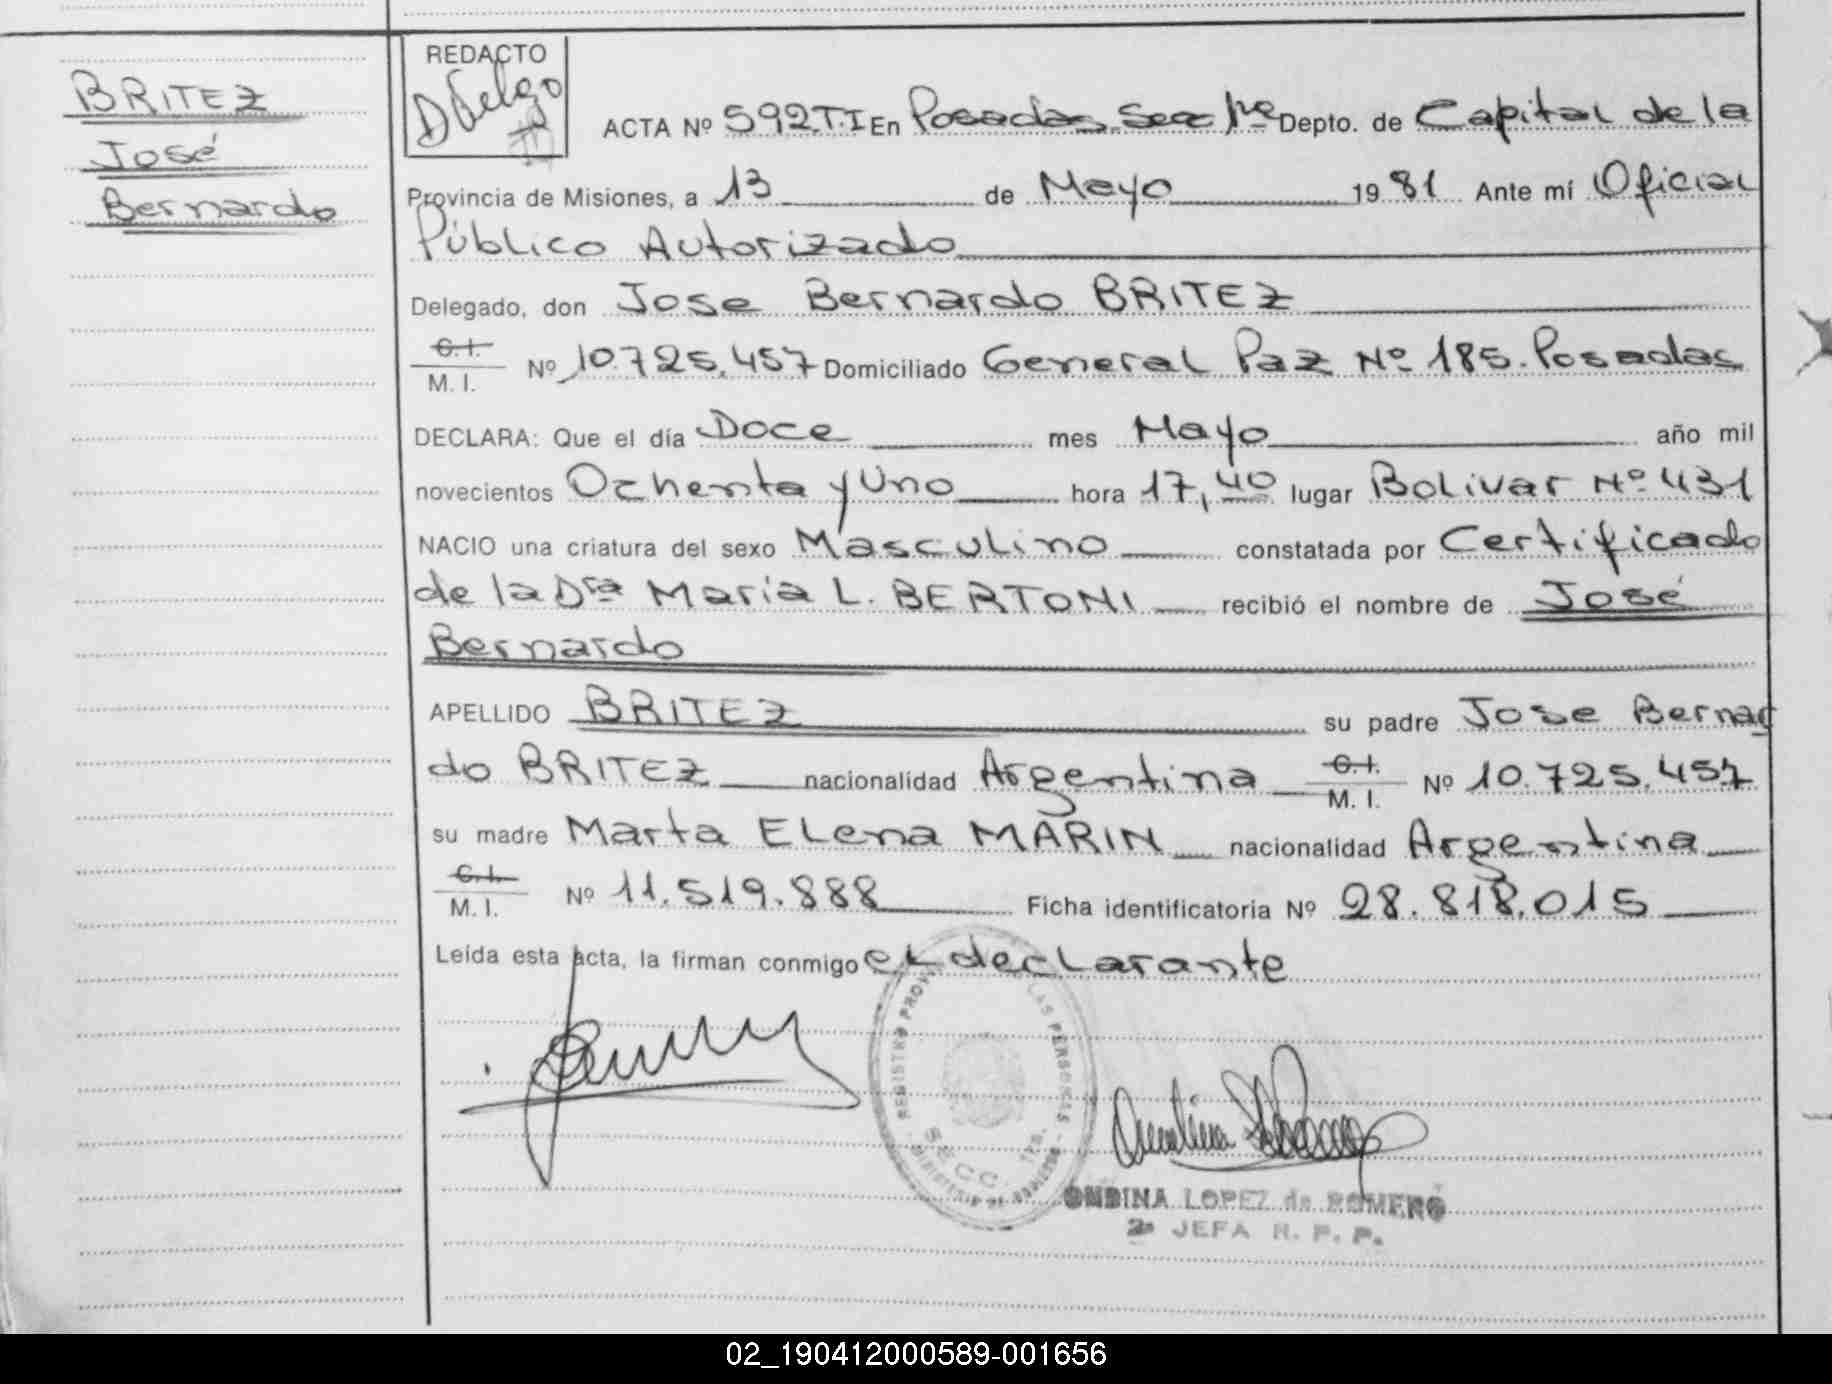 BRITEZ
José
Bernardo
REDACTO
ACTA Nº 592.T.I En Posadas. Secc 1ra Depto. de Capital de la
Provincia de Misiones, a 13 de Mayo 1981 Ante mí Oficial
Público Autorizado
Delegado, don Jose Bernardo BRITEZ
C.I.
M. I. Nº 10.725.457 Domiciliado General Paz Nº 185. Posadas
DECLARA: Que el día Doce mes Mayo año mil
novecientos Ochenta y Uno hora 17,40 lugar Bolivar Nº 431
NACIO una criatura del sexo Masculino constatada por Certificado
de la Dra María L. BERTONI recibió el nombre de José
Bernardo
APELLIDO BRITEZ su padre Jose Bernar
do BRITEZ nacionalidad Argentina C.I. M. I. Nº 10.725.457
su madre Marta ELena MARIN nacionalidad Argentina
C.I.
M. I. Nº 11.519.888 Ficha identificatoria Nº 28.818.015
Leída esta acta, la firman conmigo eL decLarante
REGISTRO PROV LAS PERSONAS
SECC 1ra.
ONDINA LOPEZ de ROMERO
2a JEFA R. P. P.
02_190412000589-001656